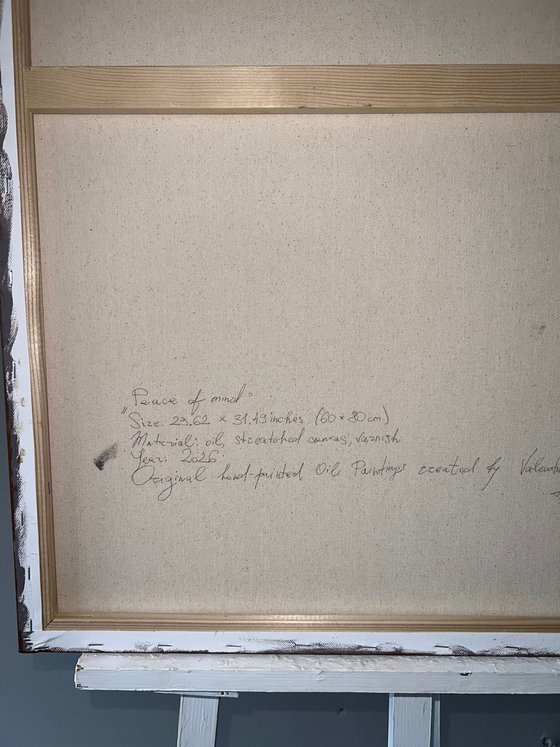 "Peace of mind"
Size: 23.62 x 31.49 inches (60 * 80 cm)
Material: oil, streatched canvas, varnish
Year: 2026
Original hand-painted Oil Paintings created by